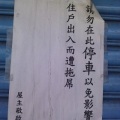 請勿在此停車以免影響
住戶出入而遭拖吊
屋主敬啟